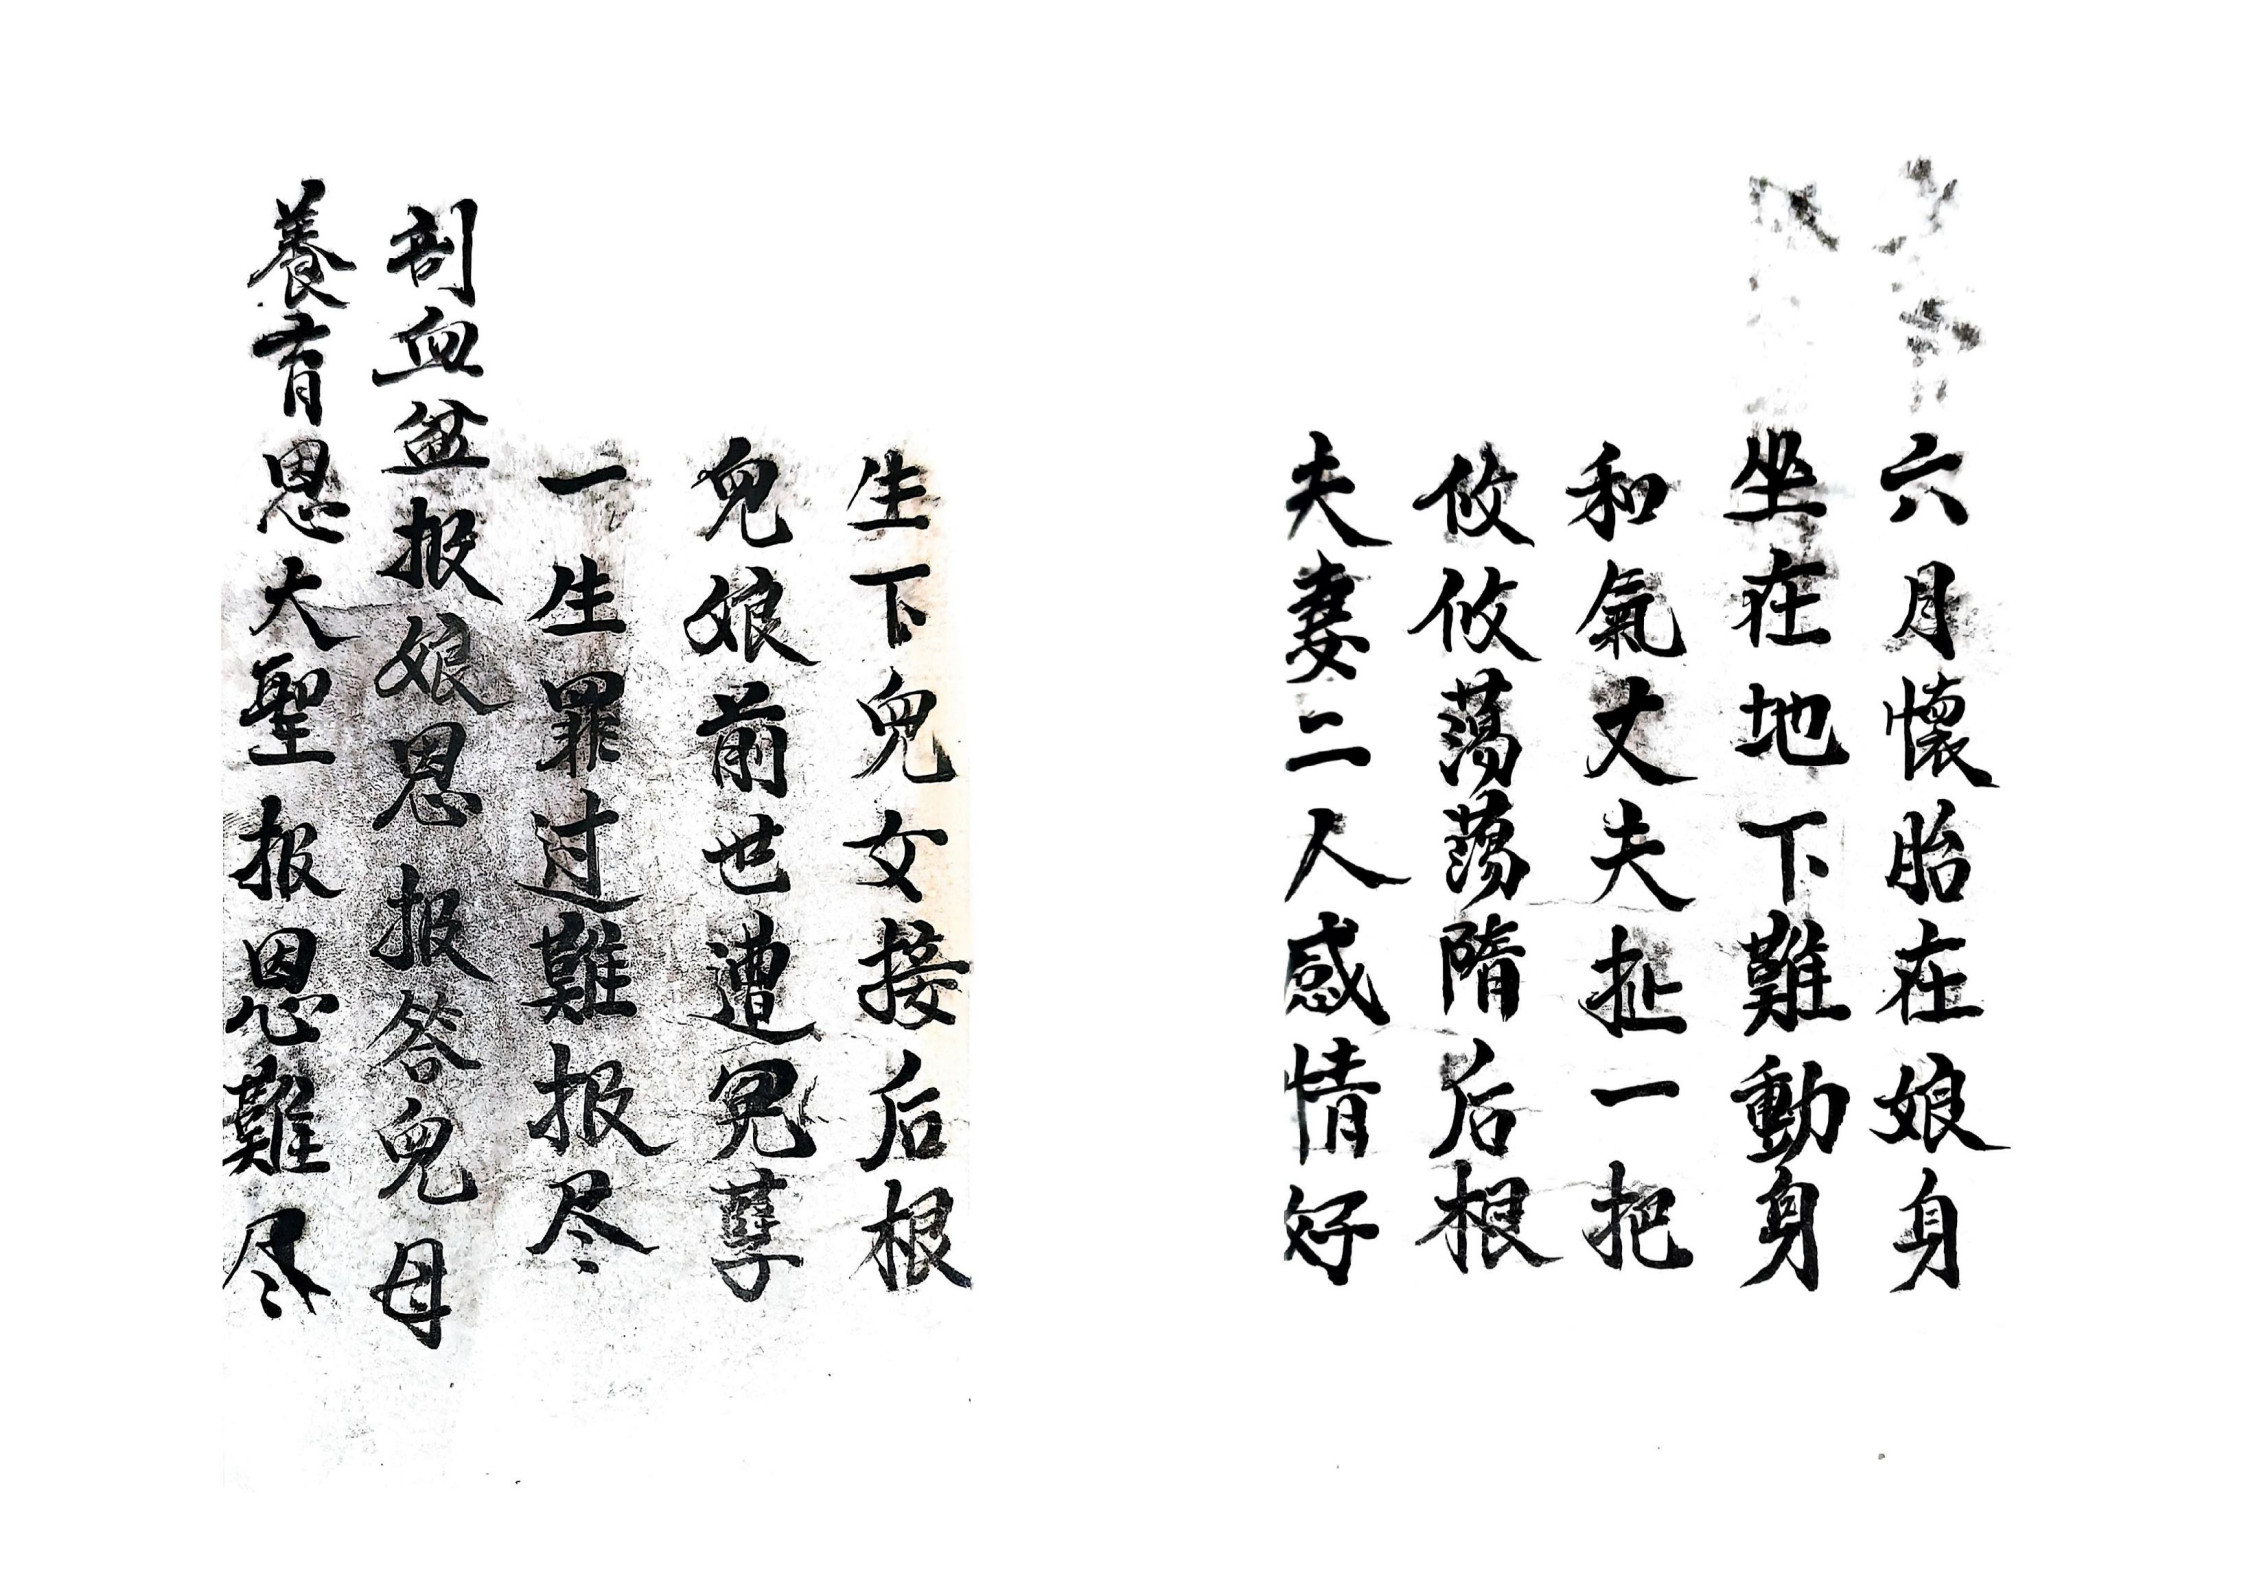 六月懷胎在娘身
坐在地下難動身
和氣丈夫扯一把
攸攸蕩蕩隋后根
夫妻二人感情好
生下兒女接后根
兒娘前世遭冤孽
一生罪过難报尽
刮血盆报娘恩报答兒母
養育恩大聖报恩難尽